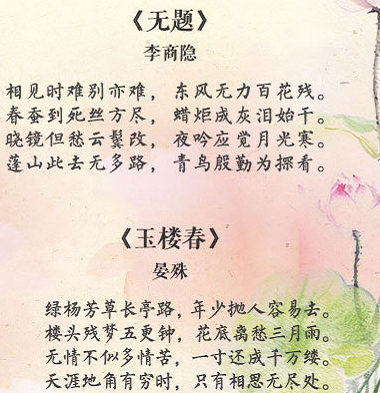 《无题》
李商隐
相见时难别亦难，东风无力百花残。
春蚕到死丝方尽，蜡炬成灰泪始干。
晓镜但愁云鬓改，夜吟应觉月光寒。
蓬山此去无多路，青鸟殷勤为探看。
《玉楼春》
晏殊
绿杨芳草长亭路，年少抛人容易去。
楼头残梦五更钟，花底离愁三月雨。
无情不似多情苦，一寸还成千万缕。
天涯地角有穷时，只有相思无尽处。